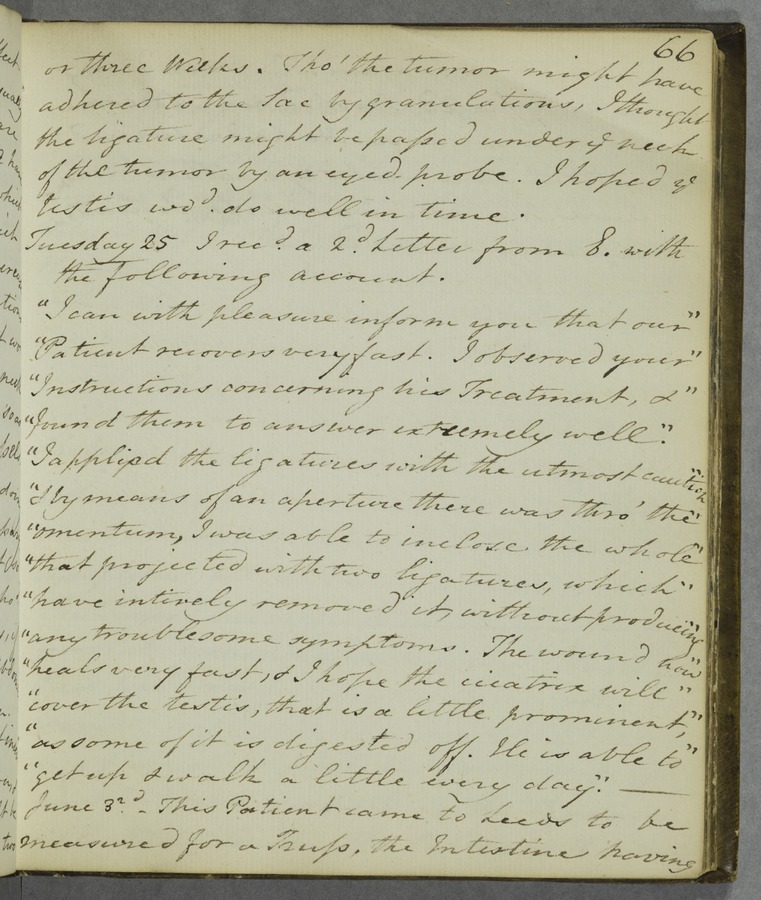 66
or three Weeks. Tho' the tumor might have
adhered to the Sac by granulations, I thought
the ligature might be passed under yͤ neck
of the tumor by an eyed-probe. I hoped yͤ
testis wd. do well in time.
Tuesday 25 I recd. a 2d. Letter from E. with
the following account.
"I can with pleasure inform you that our"
"Patient recovers very fast. I observed your"
"Instructions concerning his Treatment, &"
"found them to answer extreemely well."
"I applied the ligatures with the utmost caution"
"& by means of an aperture there was thro' the"
"omentum, I was able to inclose the whole"
"that projected with two ligatures, which"
"have intirely removed it, without producing"
"any troublesome symptoms. The wound now"
"heals very fast, & I hope the cicatrix will"
"cover the testis, that is a little prominent,"
"as some of it is digested off. He is able to"
"get up & walk a little every day." —
June 3d. - This Patient came to Leeds to be
measured for a Truss, the Intestine having